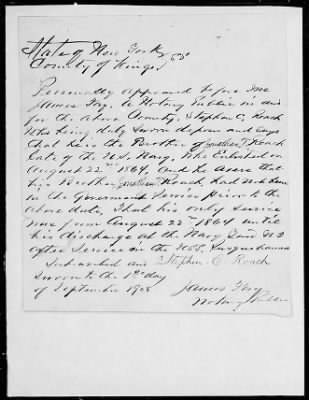 State of New York
County of Kings } SS
Personally appeared before me
James Foy, a Notary Public in and
for the above County, Stephen C. Roach
Who being duly Sworn deposes and Says
that he is the Brother of Jonathan T. Roach
late of the U.S. Navy, Who Enlisted on
August 22nd 1864, and he avers that
his Brother, Jonathan T. Roach, had not been
in the Government Service prior to the
above date. That his only Service
was from August 22nd 1864 until
his discharge at the Navy Yard
after Service in the U.S.S. Susquehanna
Subscribed and Stephen C. Roach
Sworn to the 1st day
of September 1908
James Foy
Notary Public